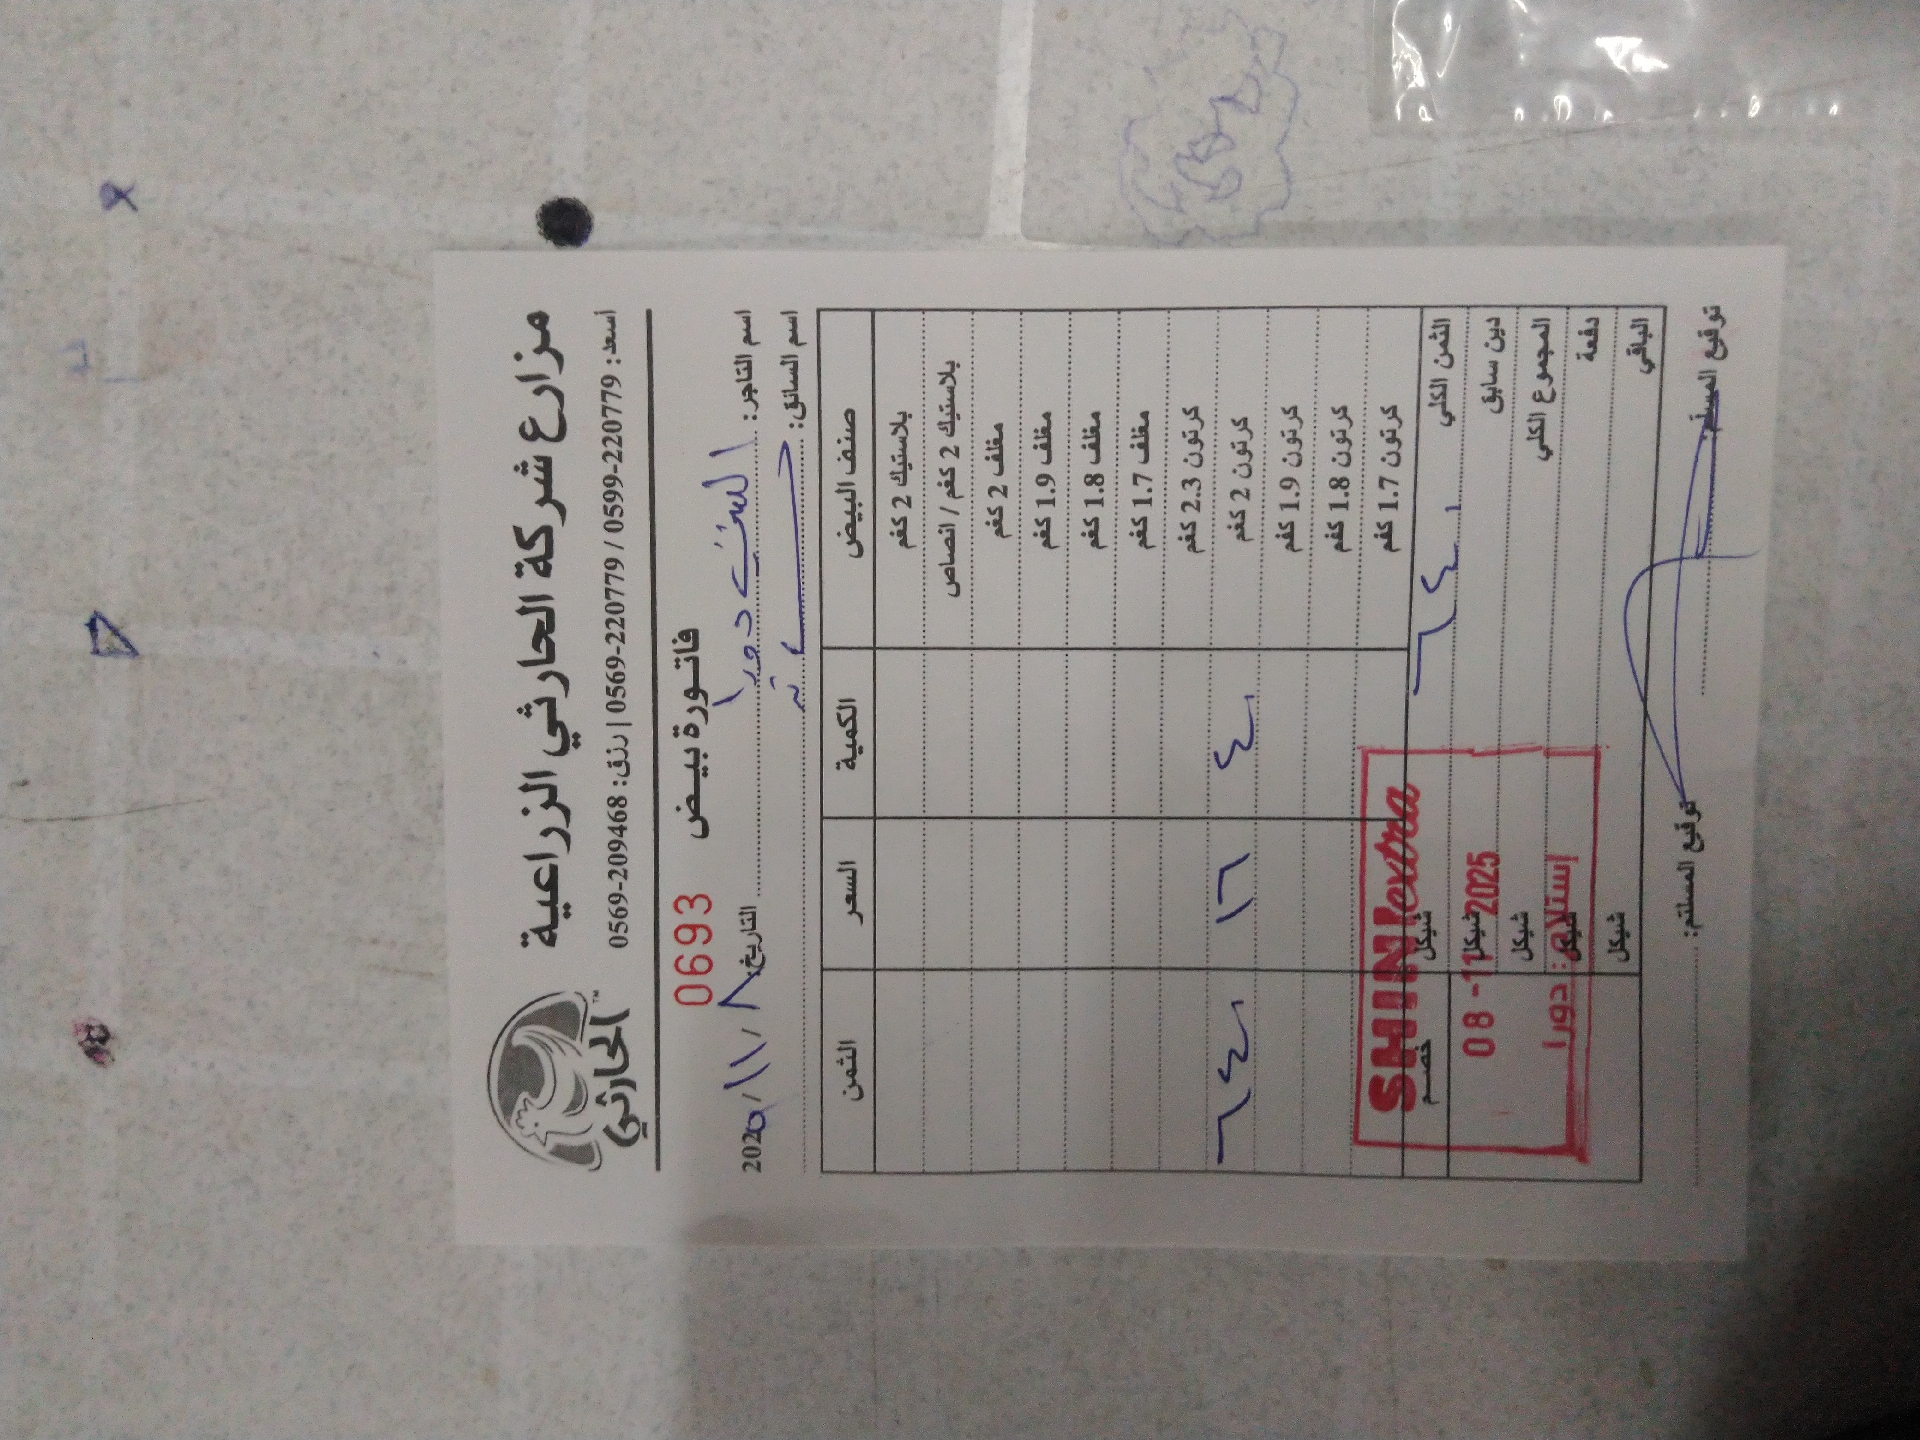 مزارع شركة الحارثي الزراعية
اسعد: 0599-220779 / 0569-220779 | رزق: 0569-209468
الحارثي™
فاتورة بيض 0693
اسم التاجر: الشني دورا التاريخ ٨ / ١١ / 202٥
اسم السائق:
صنف البيض الكمية السعر الثمن
بلاستيك 2 كغم
بلاستيك 2 كغم / انصاص
مغلف 2 كغم
مغلف 1.9 كغم
مغلف 1.8 كغم
مغلف 1.7 كغم
كرتون 2.3 كغم
كرتون 2 كغم ٤٠ ١٦ ٦٤٠
كرتون 1.9 كغم
كرتون 1.8 كغم
كرتون 1.7 كغم
الثمن الكلي ٦٤٠ شيكل خصم
دين سابق شيكل
المجموع الكلي شيكل
دفعة شيكل
الباقي شيكل
SHINI extra
08 -11 2025
إستلام: دورا
توقيع المسلم: توقيع المستلم: